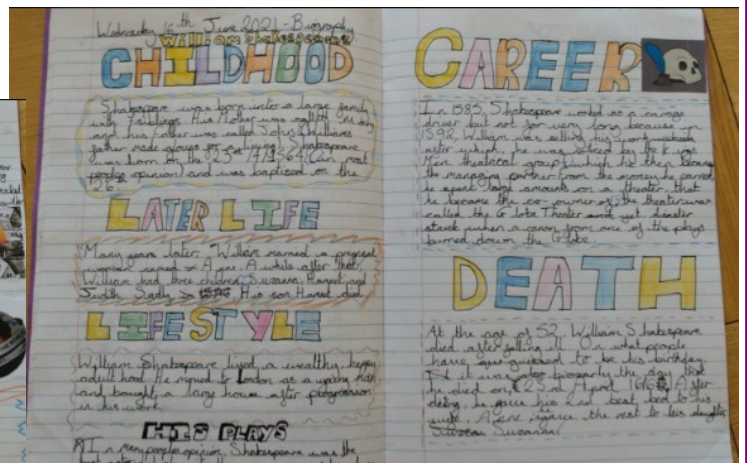 Wednesday 16th June 2021 - Biography
William Shakespeare
CHILDHOOD
Shakespeare was born into a large family
with 7 siblings. His Mother was called
and his Father was called John. Williams
father made gloves for a living. Shakespeare
was born on the 23rd /4/1564 (in most
peoples opinion) and was baptised on the
26.
LATER LIFE
Many years later, William married a pregnant
woman named Anne. A while after that,
William had three children, Suzanna, Hamnet and
Judith. Sadly His son Hamnet died
LIFESTYLE
William Shakespeare lived a wealthy happy
adult hood. He moved to London as a young man
and bought a large house after progression
in his work.
HIS PLAYS
In many peoples opinion, Shakespeare was the
CAREER
In 1585, Shakespeare worked as a
driver but not for very long because in
1592, William was selling his work
after which, he was the kings
Men theatrical group which he then became
the managing partner from the money he earned,
he spent large amounts on a theater that
he became the co-owner of, the theater was
called the Globe Theater and yet disaster
struck when a canon from one of the plays
burned down the Globe.
DEATH
At the age of 52, William Shakespeare
died after falling ill. On what people
have to be his birthday.
it was the day that
he died on 23rd April 1616. After
he gave his 2nd best bed to his
wife, Anne the rest to his daughter
Suzanna.